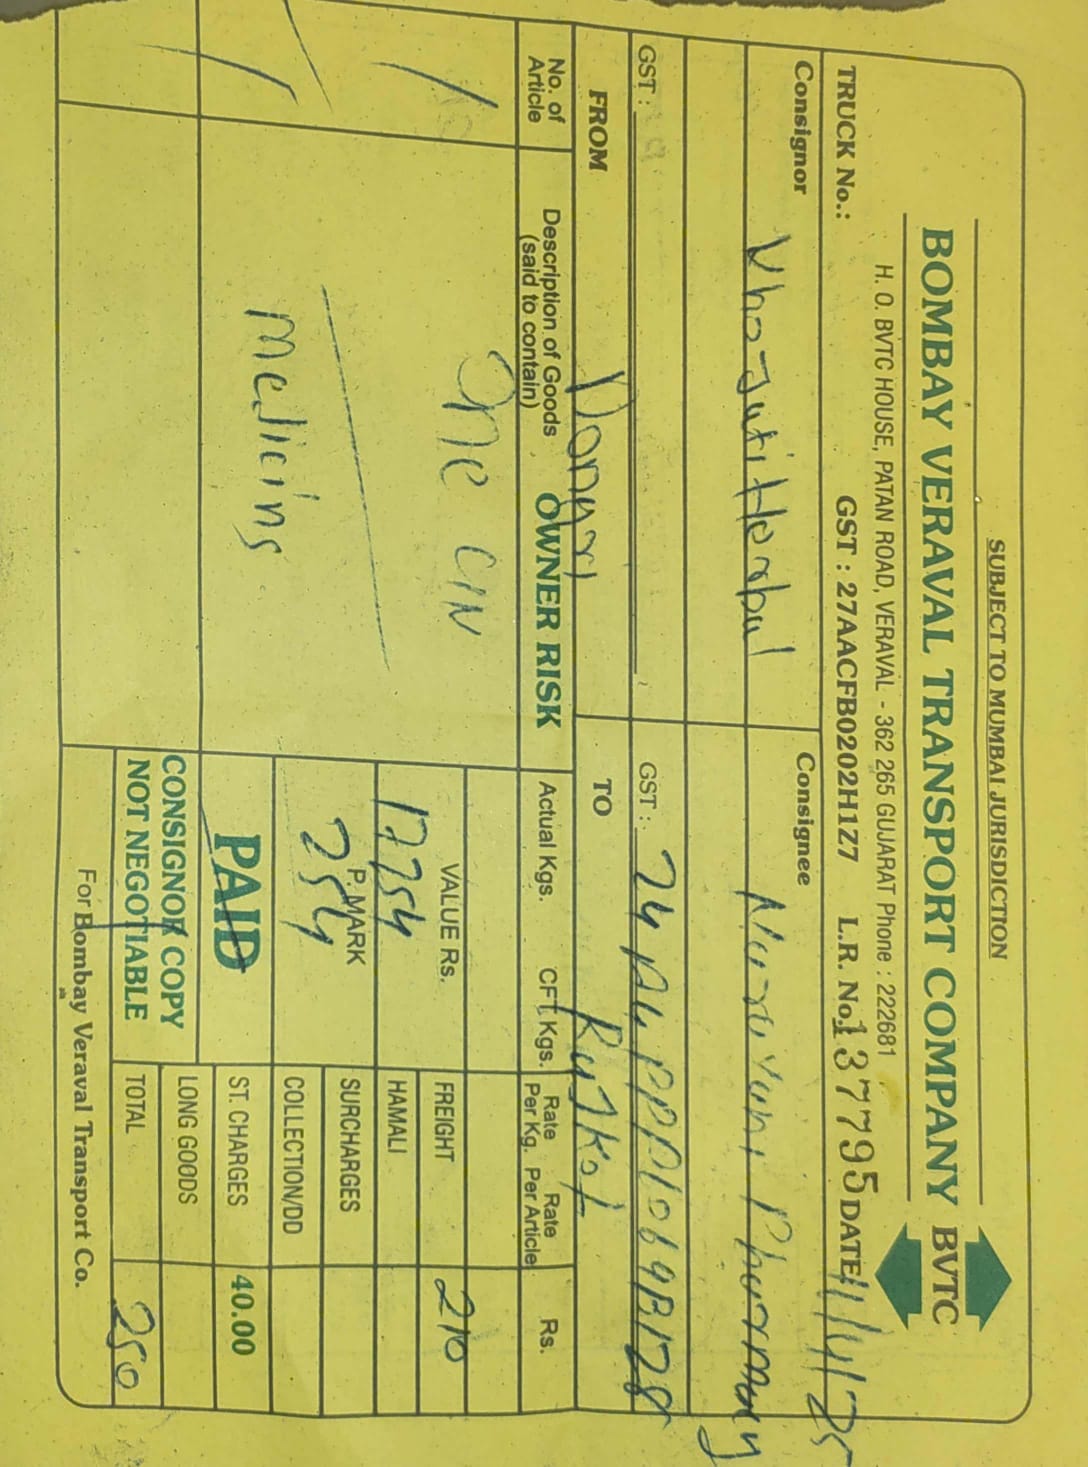 SUBJECT TO MUMBAI JURISDICTION
BOMBAY VERAVAL TRANSPORT COMPANY BVTC
H. O. BVTC HOUSE, PATAN ROAD, VERAVAL - 362 265 GUJARAT Phone : 222681
TRUCK No.: GST : 27AACFB0202H1Z7 L.R. No. 137795 DATE 11/4/25
Consignor Consignee
Herbal Narayani Pharmacy
GST : GST :
FROM Dongri TO Rajkot
No. of Article Description of Goods (said to contain) OWNER RISK Actual Kgs. CFT Kgs. Rate Per Kg. Rate Per Article Rs.
1 One C/N
VALUE Rs. FREIGHT 210
17254 HAMALI
P. MARK SURCHARGES
254 COLLECTION/DD
Medicins PAID ST. CHARGES 40.00
CONSIGNOR COPY LONG GOODS
NOT NEGOTIABLE TOTAL 250
For Bombay Veraval Transport Co.